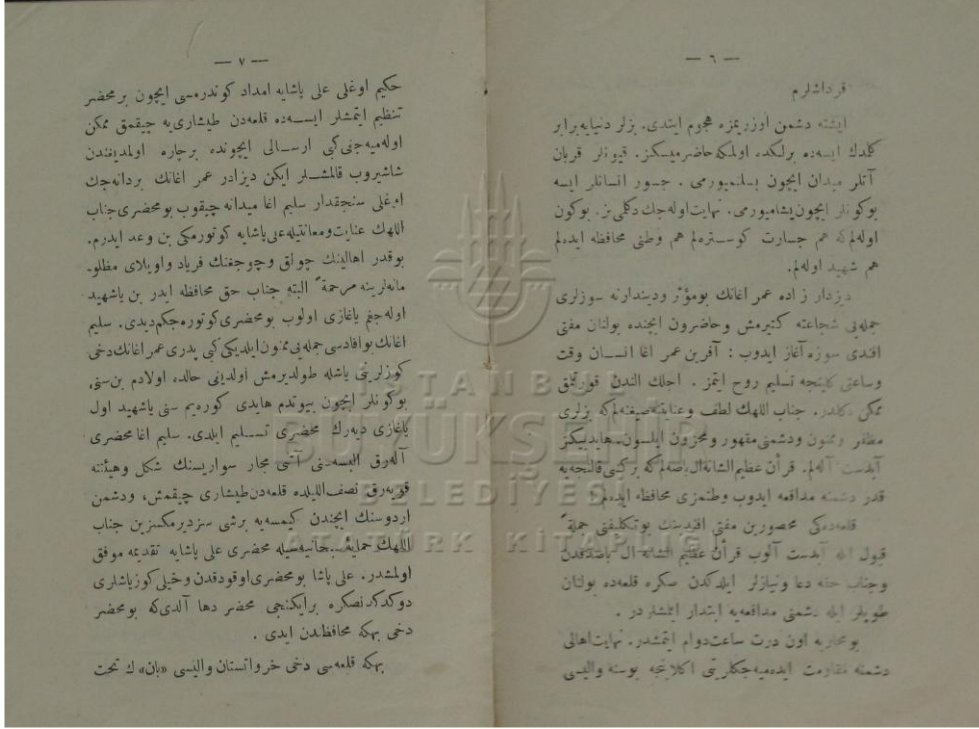 — ٦ —
قرداشلرم
ایشته دشمن اوزریمزه هجوم ایتدی. بزلر دنیایه برابر
کلدك ایسه‌ده برلکده اولمکه حاضرمیسکز. قیونلر قربان
آتلر میدان ایچون بسلنمیورمی. جسور انسانلر ایسه
بوکونلر ایچون یشامیورمی. نهایت اوله‌جك دکلمی یز. بوکون
اوله‌لم که هم جسارت کوستره‌لم هم وطنی محافظه ایده‌لم
هم شهید اوله‌لم.
دیزدار زاده عمر اغانك بومؤثر ودیندارنه سوزلری
جمله‌یی شجاعته کتیرمش وحاضرون ایچنده بولنان مفتی
افندی سوزه آغاز ایدوب : آفرین عمر اغا انسان وقت
وساعتی کلینجه تسلیم روح ایتمز. اجلك الندن قورتلمق
ممکن دکلدر. جناب اللهك لطف وعنایتنه صیغنه‌لم که بزلری
مظفر وممنون ودشمنی مقهور ومحزون ایلسون. هایدییکز
آبدست آله‌لم. قرآن عظیم الشانه ال باصه‌لم که برکشی قالنجه‌یه
قدر دشمنه مدافعه ایدوب وطنمزی محافظه ایده‌لم.
قلعه‌ده‌کی محصورین مفتی افندینك بوتکلیفنی جملةً
قبول ایله آبدست آلوب قرآن عظیم الشانه ال باصدقدن
وجناب حقه دعا ونیازلر ایلدکدن صکره قلعه‌ده بولنان
طوپلر ایله دشمنی مدافعه‌یه ابتدار ایتمشلردر.
بو محاربه اون درت ساعت دوام ایتمشدر. نهایت اهالی
دشمنه مقاومت ایده‌میه‌جکلرینی اکلاینجه بوسنه والیسی
— ٧ —
حکیم اوغلی علی پاشایه امداد کوندرمسی ایچون برمحضر
تنظیم ایتمشلر ایسه‌ده قلعه‌دن طیشاری‌یه چیقمق ممکن
اوله‌میه‌جغی کبی ارسالی ایچونده برچاره اولمدیغندن
شاشیروب قالمشلر ایکن دیزدار عمر اغانك بردانه‌جك
اوغلی سنجقدار سلیم اغا میدانه چیقوب بومحضری جناب
اللهك عنایت ومعاونتیله علی پاشایه کوتورمکی بن وعد ایدرم.
بوقدر اهالینك چولق وچوجغنك فریاد واویلای مظلو.
مانه‌لرینه مرحمةً البته جناب حق محافظه ایدر بن یاشهید
اوله‌جغم یاغازی اولوب بومحضری کوتوره‌جکم دیدی. سلیم
اغانك بوافادسی جمله‌یی ممنون ایلدیکی کبی پدری عمر اغانك دخی
کوزلرینی یاشله طولدیرمش اولدیغی حالده اولادم بن سنی،
بوکونلر ایچون بیوتدم هایدی کوره‌یم سنی یاشهید اول
یاغازی دیه‌رك محضری تسلیم ایلدی. سلیم اغا محضری
آله‌رق البسه‌سنی آتنی مجار سواریسنك شکل وهیئتنه
قویه‌رق نصف اللیلده قلعه‌دن طیشاری چیقمش، ودشمن
اردوسنك ایچندن کیمسه‌یه برشی سزدیرمکسزین جناب
اللهك حمایه سبحانیه‌سیله محضری علی پاشایه تقدیمه موفق
اولمشدر. علی پاشا بومحضری اوقودقدن وخیلی کوزیاشلری
دوکدکدنصکره برایکنجی محضر دها آلدی که بومحضر
دخی بهکه محافظندن ایدی.
بهکه قلعه‌سی دخی خرواتستان والیسی «بان» ك تحت
İSTANBUL
BÜYÜKŞEHİR
BELEDİYESİ
ATATÜRK KİTAPLIĞI